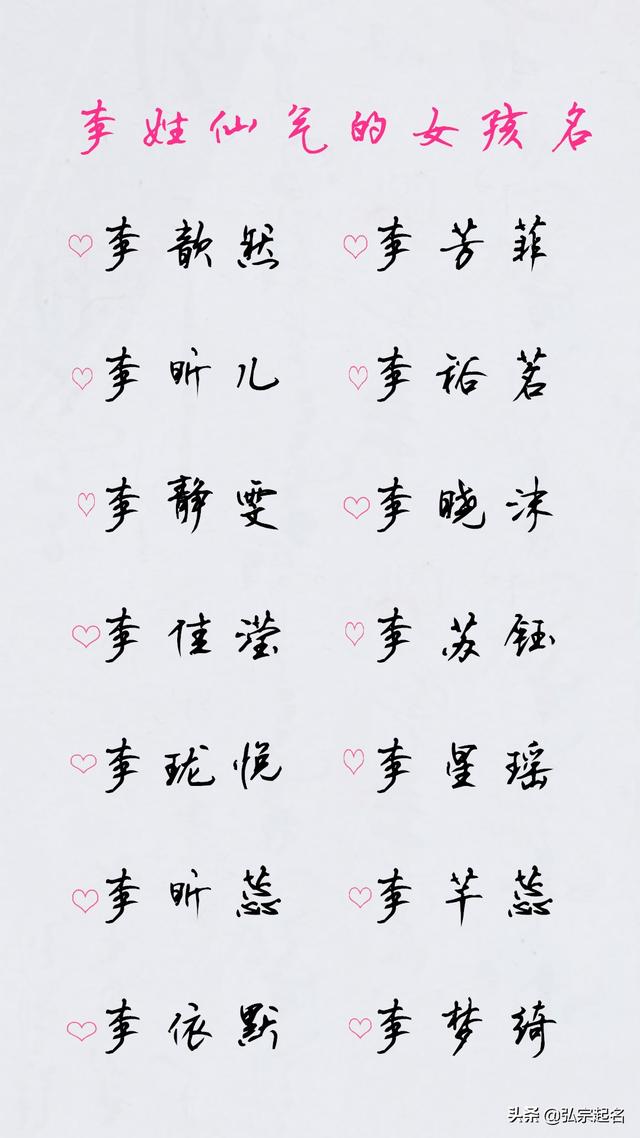 李姓仙气的女孩名
♡李歆然 ♡李芳菲
♡李昕儿 ♡李裕茗
♡李静雯 ♡李晓沫
♡李佳滢 ♡李苏钰
♡李珑悦 ♡李星瑶
♡李昕蕊 ♡李芊蕊
♡李依默 ♡李梦绮
头条 @弘宗起名